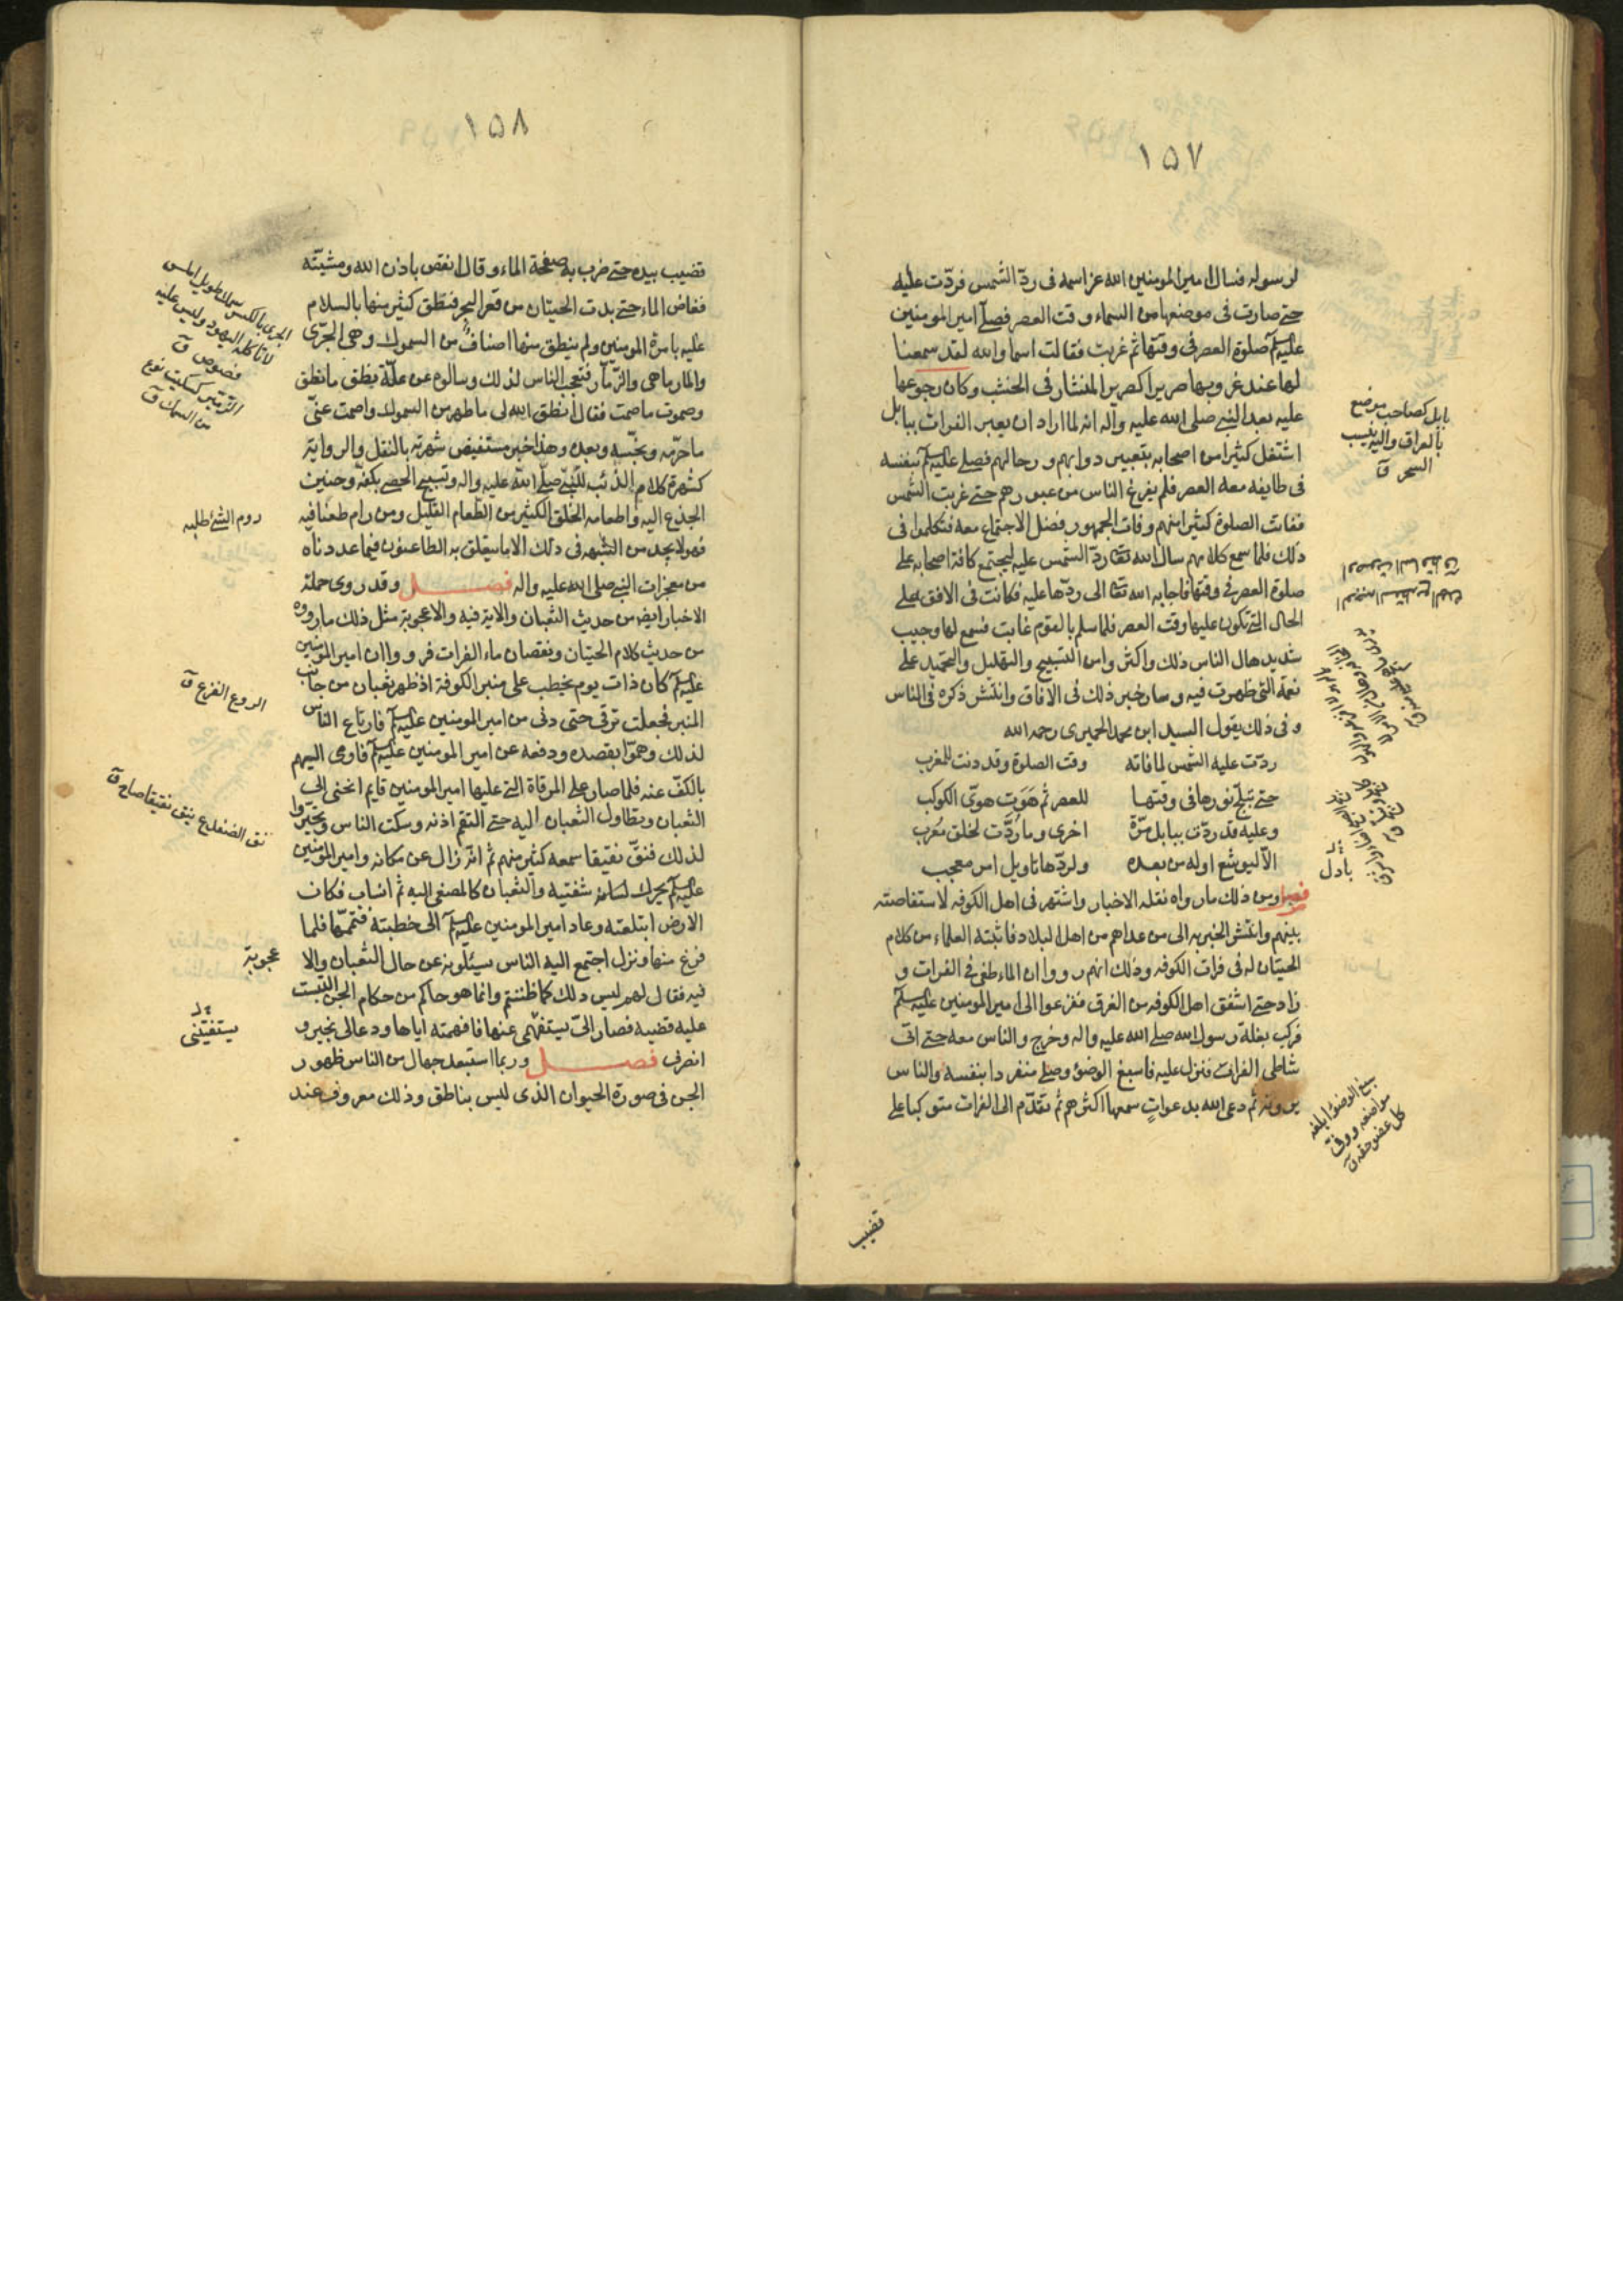 ١٥٧
لرسوله فسال امير المومنين الله عز اسمه فى ردّ الشمس فردّت عليه
حتى صارت فى موضعها من السماء وقت العصر فصلّى امير المومنين
عليه السلم صلوة العصر فى وقتها ثم غربت فقالت اسما والله لقد سمعنا
لها عند غروبها صريرا كصرير المنشار فى الخشب وكان رجوعها
عليه بعد النبى صلى الله عليه وآله انه لما اراد ان يعبر الفرات ببابل
اشتغل كثيرا من اصحابه بتعبير دوابهم ورحالهم فصلى عليه السلم بنفسه
فى طايفه معه العصر فلم يفرغ الناس من عبورهم حتى غربت الشمس
ففاتت الصلوة كثيرا منهم وفات الجمهور فضل الاجتماع معه فتكلموا فى
ذلك فلما سمع كلامهم سال الله تعالى ردّ الشمس عليه ليجتمع كافة اصحابه على
صلوة العصر فى وقتها فاجابه الله تعالى الى ردّها عليه فكانت فى الافق على
الحال التى تكون عليها وقت العصر فلما سلم بالقوم غابت فسمع لها وجيب
شديد هال الناس ذلك واكثروا من التسبيح والتهليل والتحميد على
نعمة التى ظهرت فيه وسار خبر ذلك فى الآفاق وانتشر ذكره فى الناس
وفى ذلك يقول السيد ابن محمد الحميرى رحمه الله
ردّت عليه الشمس لما فاته وقت الصلوة وقد دنت للمغرب
حتى تبلّج نورها فى وقتها للعصر ثم هَوَت هوىّ الكوكب
وعليه قد ردّت ببابل مرّة اخرى وما رُدَّت لخلق مُعرب
الّا ليوشع اوله من بعده ولردّها تاويل امر معجب
فصل ومن ذلك ما رواه نقلة الاخبار واشتهر فى اهل الكوفه لاستفاضته
بينهم وانتشر الخبر به الى من عداهم من اهل البلاد فاثبته العلماء من كلام
الحيتان له فى فرات الكوفه وذلك انهم رووا ان الماء طغى فى الفرات و
زاد حتى اشفق اهل الكوفه من الغرق ففزعوا الى امير المومنين عليه السلم
فركب بغلة رسول الله صلى الله عليه واله وخرج والناس معه حتى اتى
شاطى الفرات فنزل عليه فاسبغ الوضؤ وصلى منفردا بنفسه والناس
يرونه ثم دعى الله بدعواتٍ سمعها اكثرهم ثم تقدّم الى الفرات متوكيا على
قضيب
بابل كصاحب موضع
بالعراق واليه ينسب
السحر ق
بادل
سبغ الوضؤ ابلغه
مواضعه ووفى
كل عضو حقه ق
١٥٨
قضيب بيده حتى ضرب به صفحة الماء وقال انقص باذن الله ومشيّته
فغاض الماء حتى بدت الحيتان من قعر البحر فنطق كثير منها بالسلام
عليه بامرة المومنين ولم ينطق منها اصناف من السموك وهى الجرّى
والمارماهى والزّمار فتعجب الناس لذلك وسالوه عن علّة نطق ما نطق
وصموت ما صمت فقال انطق الله لى ما طهر من السموك واصمت عنّى
ما حرّمه ونجّسه وبعده وهذا خبر مستفيض شهرته بالنقل والرواية
كشهرة كلام الذئب للنبى صلى الله عليه واله وتسبيح الحصى بكفه وحنين
الجذع اليه واطعامه الخلق الكثير من الطعام القليل ومن رام طعنا فيه
فهو لا يجد من الشبهه فى ذلك الا ما يتعلق به الطاعنون فيما عددناه
من معجزات النبى صلى الله عليه واله فصل وقد روى حملة
الاخبار ايضا من حديث الثعبان والاية فيه والاعجوبة مثل ذلك ما رووه
من حديث كلام الحيتان ونقصان ماء الفرات فرووا ان امير المومنين
عليه السلم كان ذات يوم يخطب على منبر الكوفة اذ ظهر ثعبان من جانب
المنبر فجعلت ترقى حتى دنى من امير المومنين عليه السلم فارتاع الناس
لذلك وهمّوا بقصده ودفعه عن امير المومنين عليه السلم فاومى اليهم
بالكفّ عنه فلما صار على المرقاة التى عليها امير المومنين قايم انحنى الى
الثعبان وتطاول الثعبان اليه حتى التقم اذنه وسكت الناس وتحيّروا
لذلك فنقّ نقيقا سمعه كثير منهم ثم انه زال عن مكانه وامير المومنين
عليه السلم يحرك لسانه شفتيه والثعبان كالمصغى اليه ثم انساب فكان
الارض ابتلعته وعاد امير المومنين عليه السلم الى خطبته فتمّمها فلما
فرغ منها ونزل اجتمع اليه الناس يسئلونه عن حال الثعبان والا
عجوبة
فيه فقال لهم ليس ذلك كما ظننتم وانما هو حاكم من حكام الجن التبست
عليه قضيه فصار الىّ يستفهمى عنها فافهمته اياها ودعا لى بخير و
انصرف فصل وربما استبعد جهال من الناس ظهور
الجن فى صورة الحيوان الذى ليس بناطق وذلك معروف عند
الجرى بالكسر سمك طويل املس
لا تاكله اليهود وليس عليه
فصوص ق
الزمير كسكيت نوع
من السمك ق
روم الشئ طلبه
الروع الفزع ق
نق الضفدع ينق نقيقا صاح ق
يستفتينى